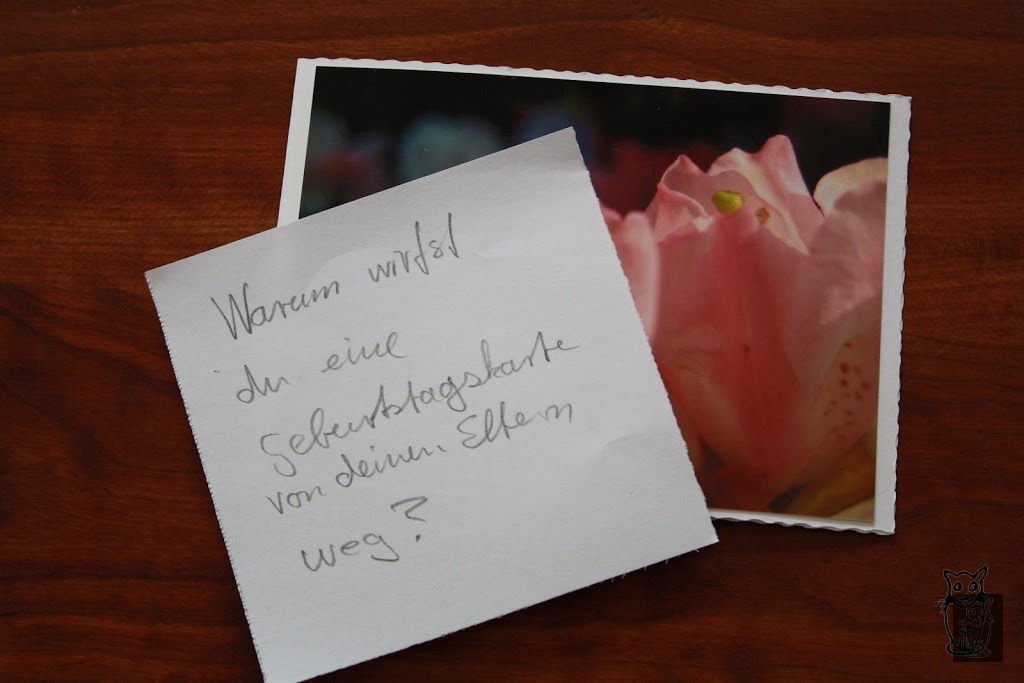 Warum wirfst
du eine
Geburtstagskarte
von deinen Eltern
weg?